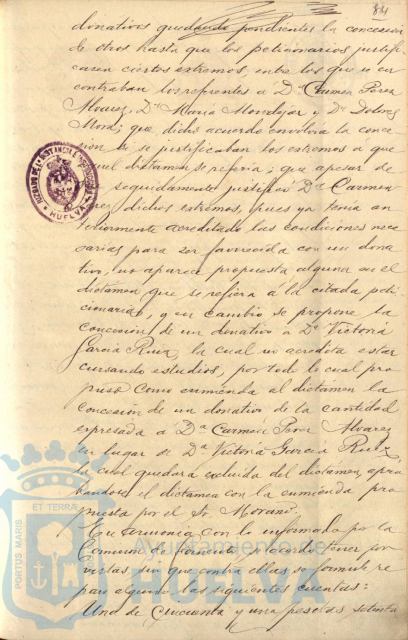 84
donativos quedando pendientes la concesión
de otros hasta que los peticionarios justifi
casen ciertos extremos, entre los que se en
contraban los referentes a Dª Carmen Perez
Alvarez, Dª Maria Mondejar y Dª Dolores
Mora; que dicho acuerdo envolvia la conce
sion si se justificaban los extremos a que
aquel dictamen se referia; que apesar de
que seguidamente justificó Dª Carmen
Perez dichos extremos, pues ya tenia an
teriormente acreditado las condiciones nece
sarias para ser favorecida con un dona
tivo, no aparece propuesta alguna en el
dictamen que se refiera a la citada peti
cionaria, y en cambio se propone la
concesion de un donativo a Dª Victoria
Garcia Ruiz, la cual no acredita estar
cursando estudios, por todo lo cual pro
puso como enmienda al dictámen la
concesion de un donativo de la cantidad
expresada a Dª Carmen Perez Alvarez
en lugar de Dª Victoria Garcia Ruiz,
la cual quedará excluida del dictamen, apro
bandose el dictamen con la enmienda pro
puesta por el Sr. Morano.
En armonia con lo informado por la
Comision de Hacienda, se acordó tener por
vistas, sin que contra ellas se formule re
paro alguno las siguientes cuentas:
Una de cincuenta y una pesetas setenta
HUELVA
PORTUS MARIS
ET TERRA
Ayuntamiento de
HUELVA